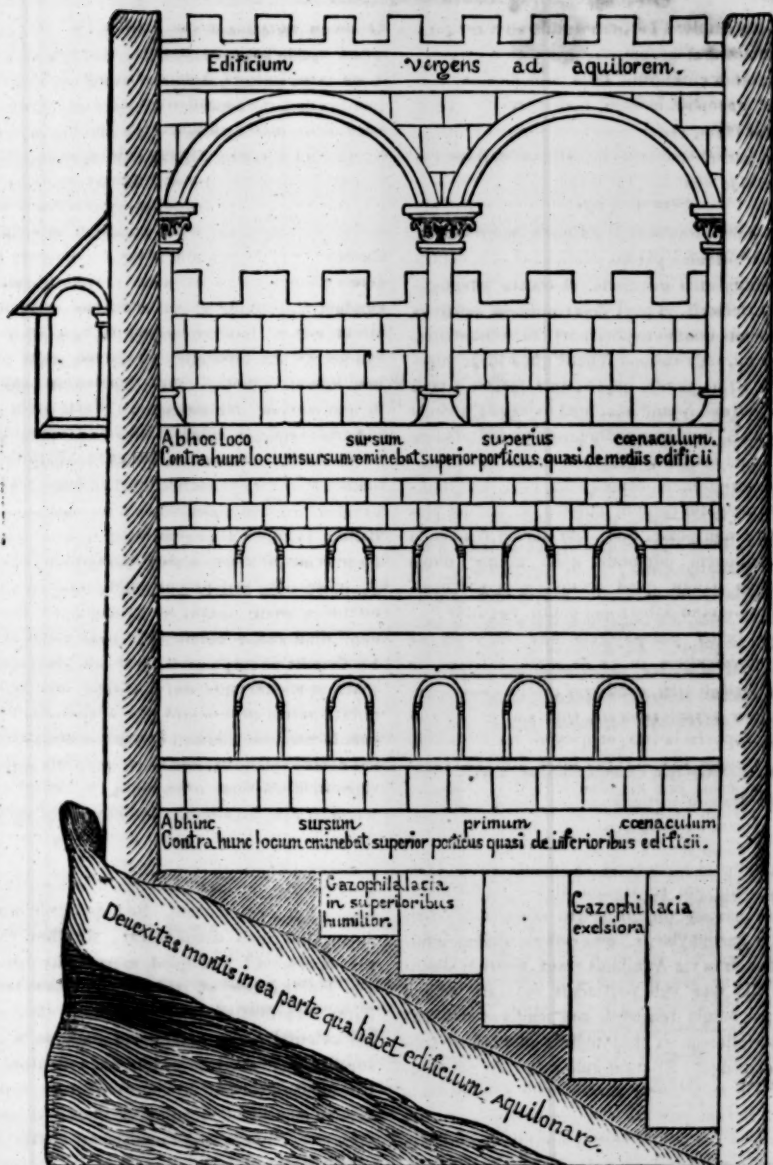 Edificium vergens ad aquilorem.
Abhoc loco sursum superius cœnaculum.
Contra hunc locum sursum eminebat superior porticus, quasi de mediis edificii
Abhinc sursum primum cœnaculum
Contra hunc locum eminebat superior porticus quasi de inferioribus edificii.
Gazophilalacia
in superioribus
humilior.
Gazophi lacia
excelsiora
Devexitas montis in ea parte qua habet edificium: Aquilonare.